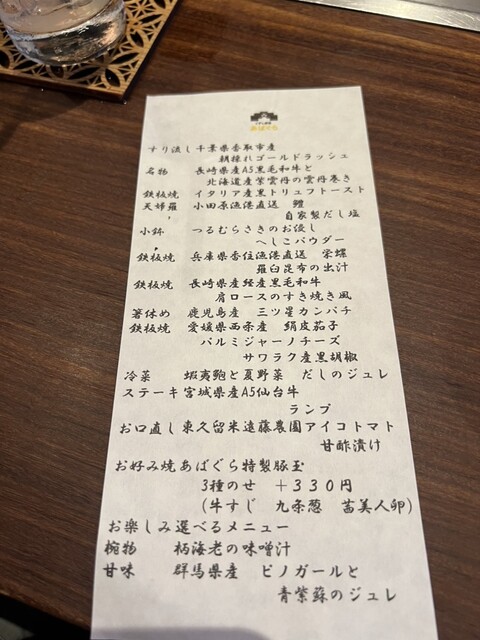 あばぐら
すり流し 千葉県香取市産
朝採れゴールドラッシュ
名物 長崎県産A5黒毛和牛と
北海道産紫雲丹の雲丹巻き
鉄板焼 イタリア産黒トリュフトースト
天婦羅 小田原漁港直送 鱧
自家製だし塩
小鉢 つるむらさきのお浸し
へしこパウダー
鉄板焼 兵庫県香住漁港直送 栄螺
羅臼昆布の出汁
鉄板焼 長崎県産経産黒毛和牛
肩ロースのすき焼き風
箸休め 鹿児島産 三ツ星カンパチ
鉄板焼 愛媛県西条産 絹皮茄子
パルミジャーノチーズ
サワラク産黒胡椒
冷菜 蝦夷鮑と夏野菜 だしのジュレ
ステーキ 宮城県産A5仙台牛
ランプ
お口直し 東久留米遠藤農園アイコトマト
甘酢漬け
お好み焼 あばぐら特製豚玉
3種のせ +330円
(牛すじ 九条葱 茜美人卵)
お楽しみ選べるメニュー
椀物 柄海老の味噌汁
甘味 群馬県産 ピノガールと
青紫蘇のジュレ